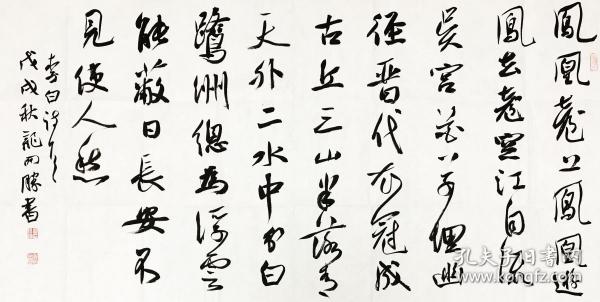 鳳凰臺上鳳凰遊
鳳去臺空江自流
吳宮花草埋幽
徑晉代衣冠成
古丘三山半落青
天外二水中分白
鷺洲總為浮雲
能蔽日長安不
見使人愁
李白詩一首
戊戌秋龍雨勝書
孔夫子旧书网